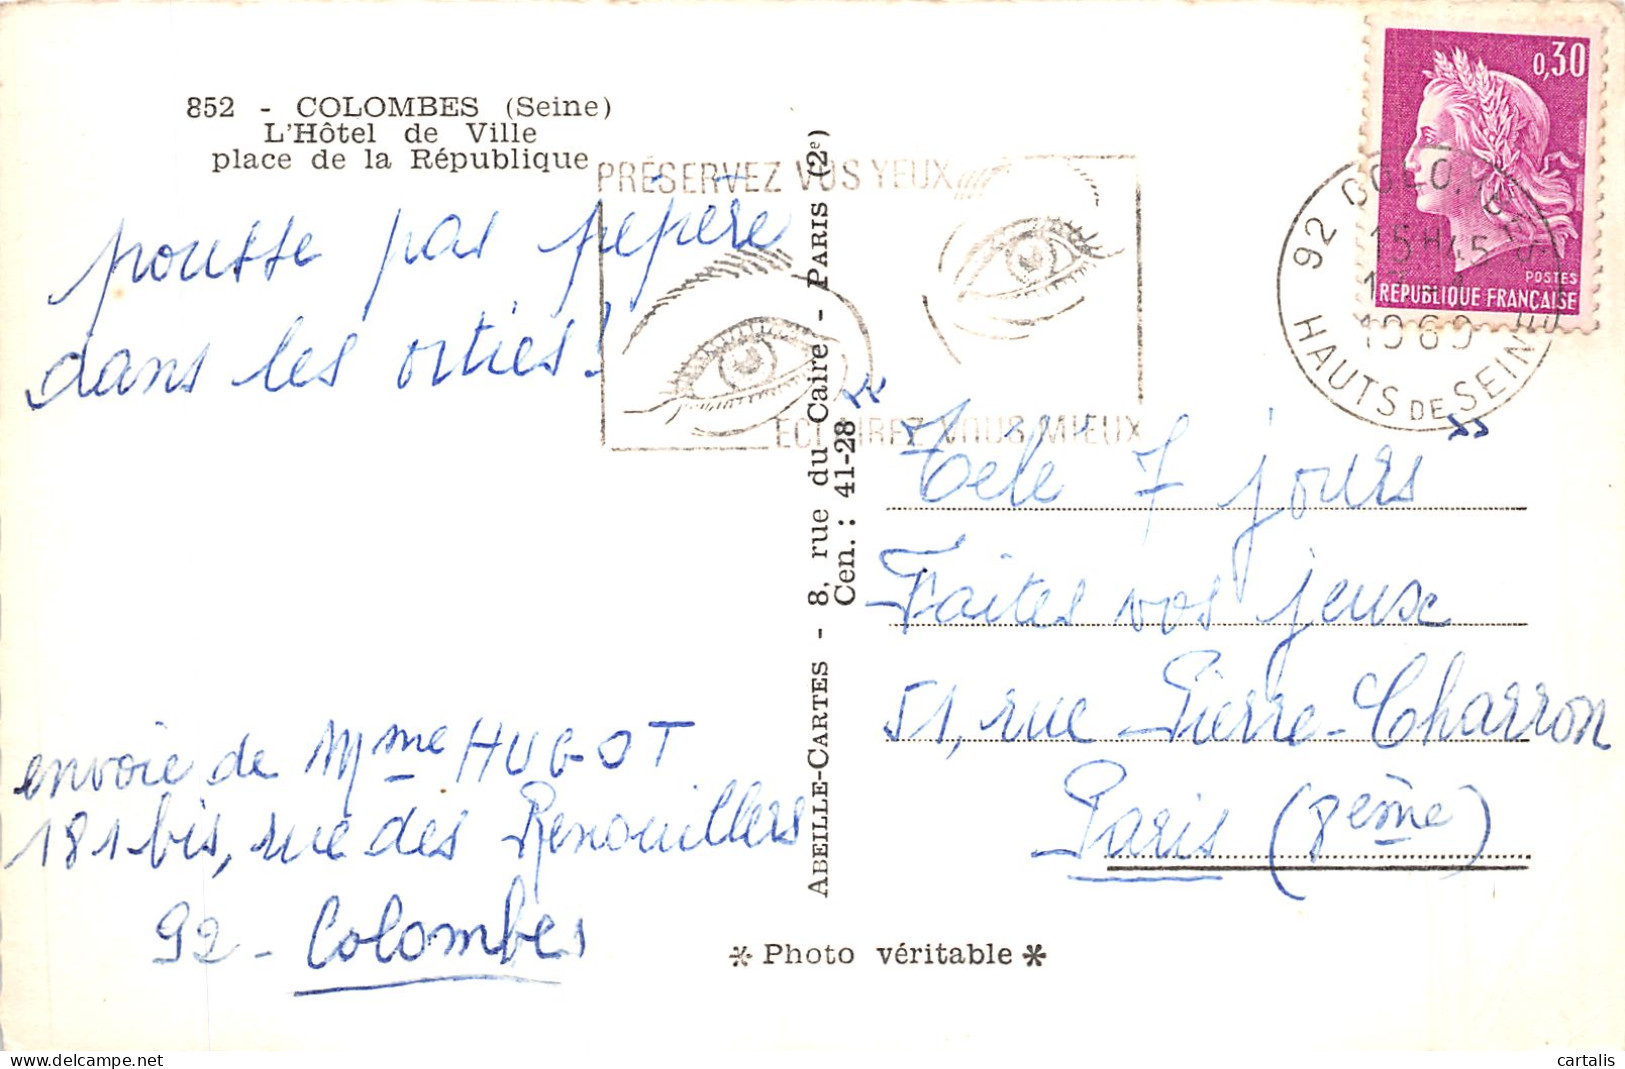 852 - COLOMBES (Seine)
L'Hôtel de Ville
place de la République
pousse pas pépère
dans les orties!
envoie de Mme HUGOT
181 bis, rue des Renouillers
92 - Colombes
ABEILLE-CARTES - 8, rue du Caire - PARIS (2e)
Cen. : 41-28
PRÉSERVEZ VOS YEUX
ECLAIREZ VOUS MIEUX
0,30
POSTES
RÉPUBLIQUE FRANÇAISE
92 COLOMBES
15H45
1969
HAUTS DE SEINE
"Télé 7 jours"
Faites vos jeux
51, rue Pierre-Charron
Paris (8ème)
* Photo véritable *
cartalis